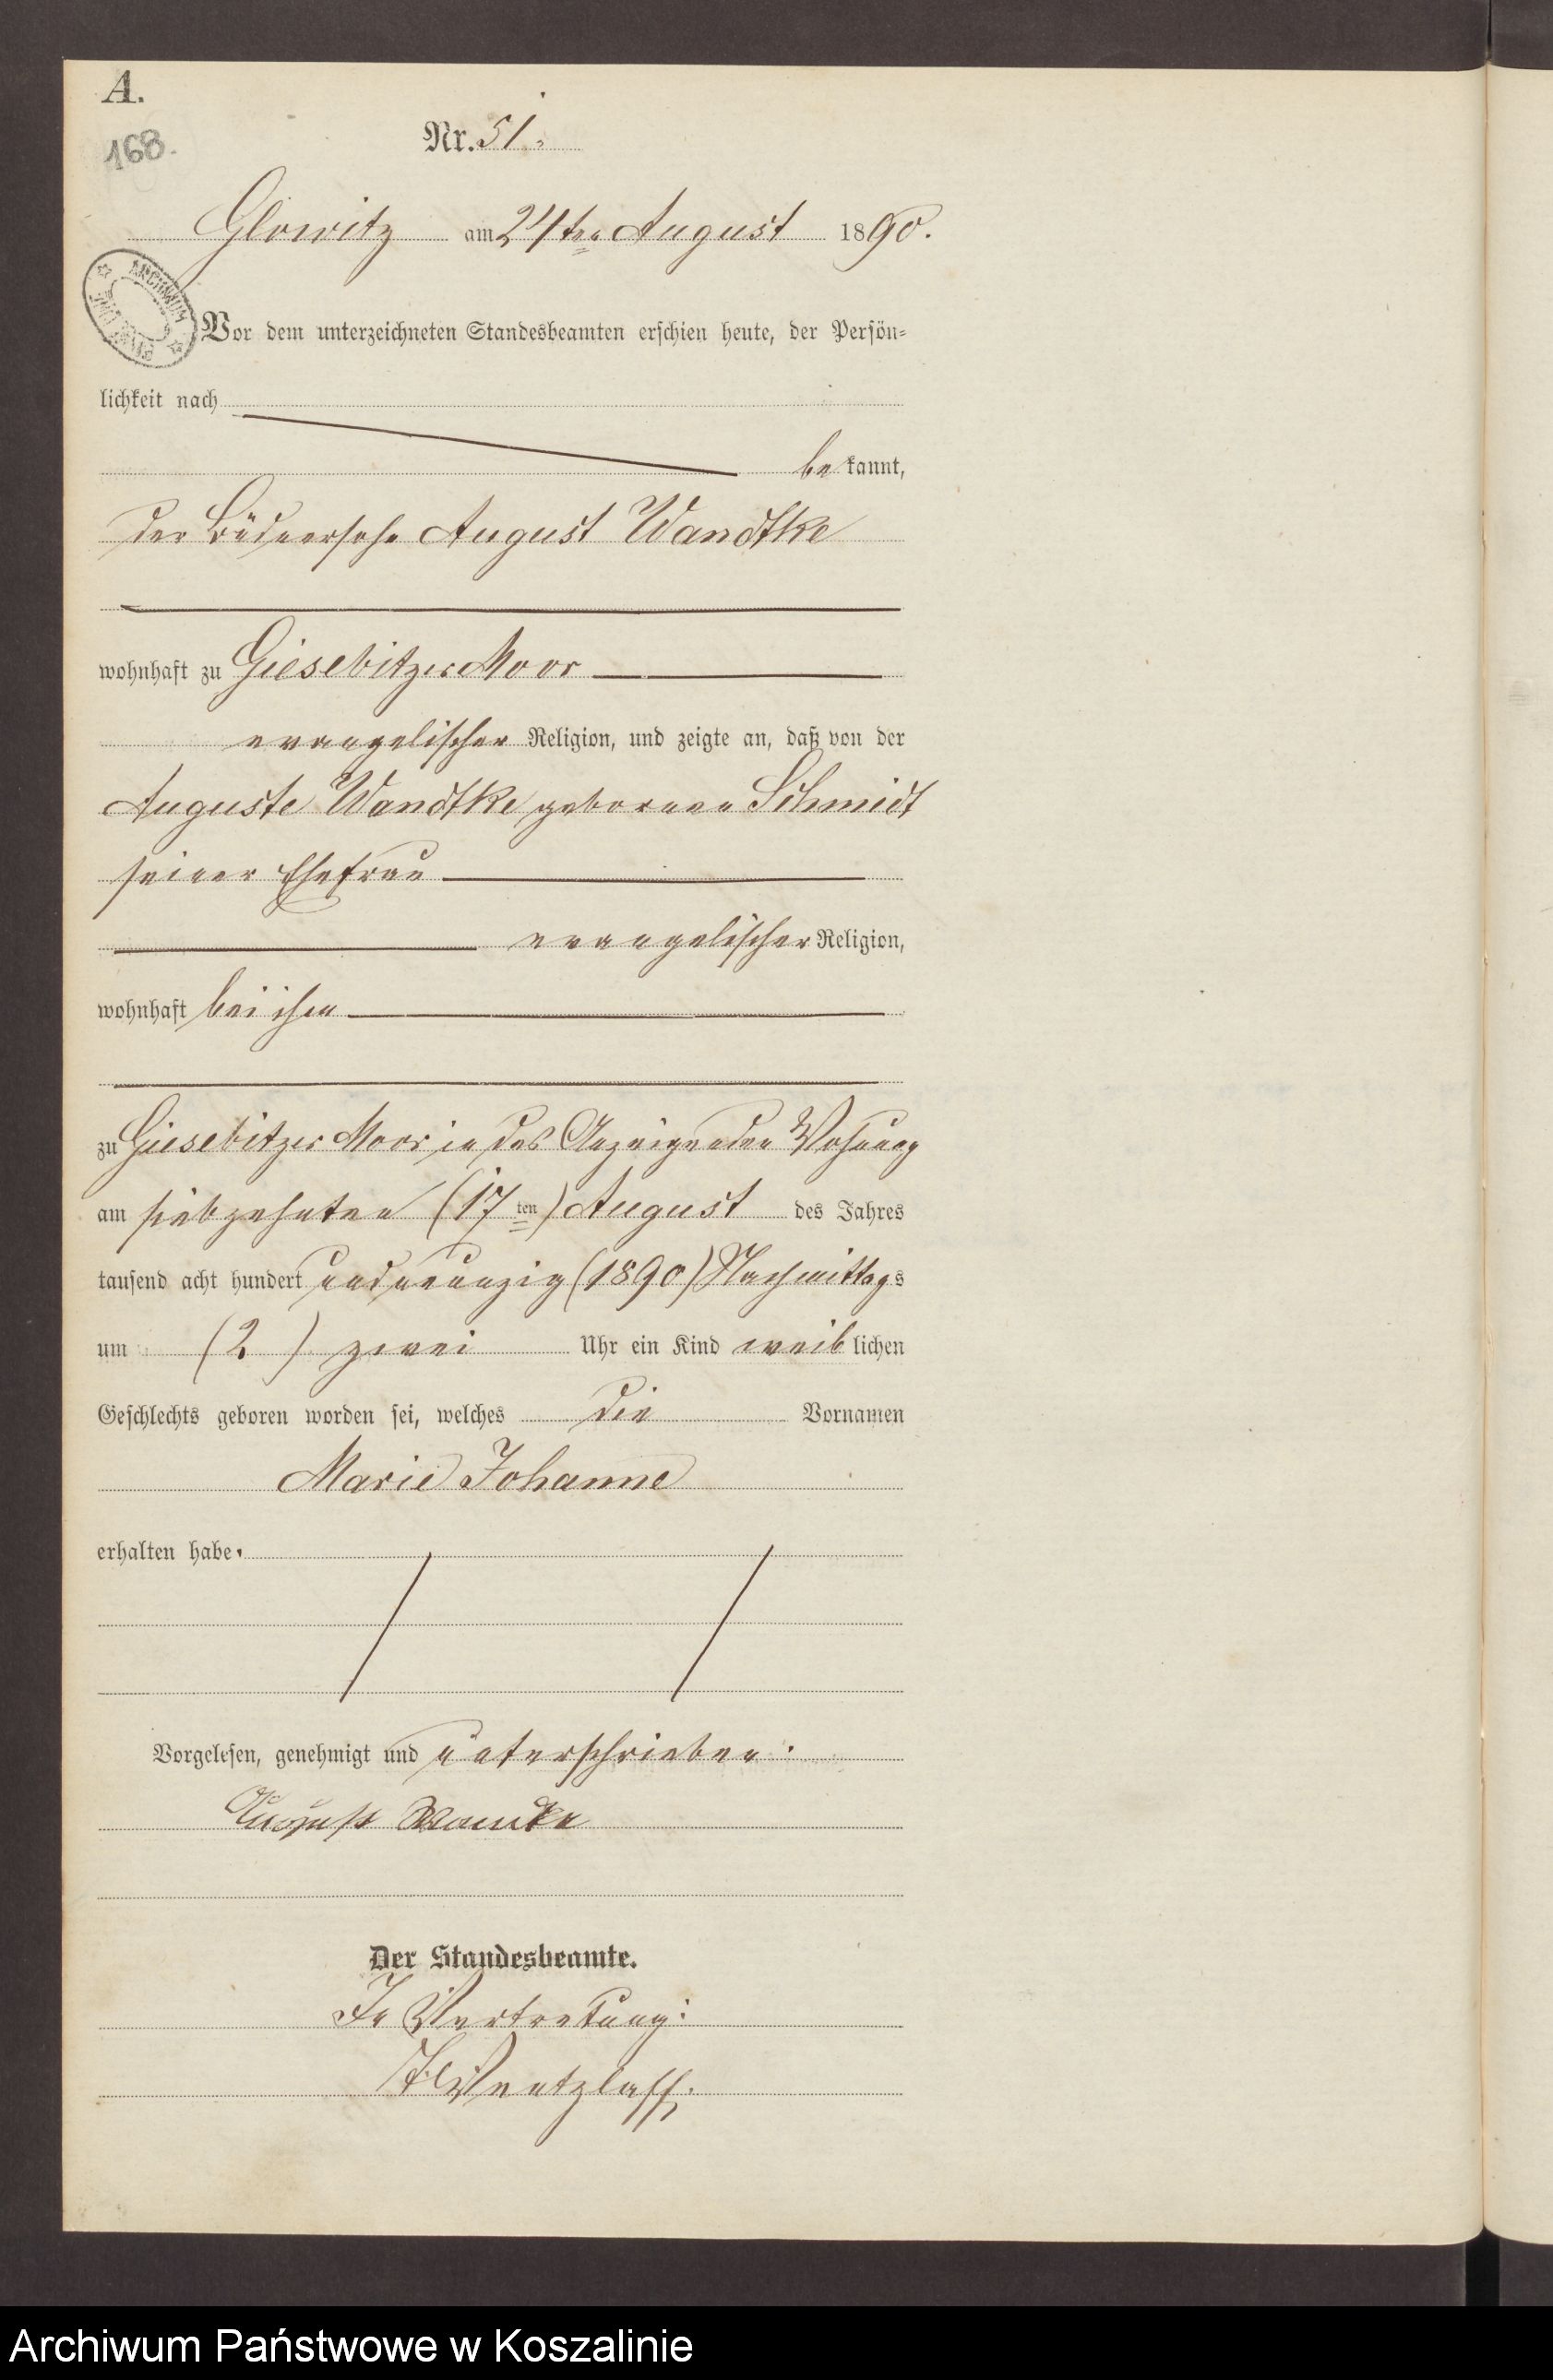 A.
168.
Nr. 51.
Glowitz am 24ten August 1890.
ARCHIWUM
Vor dem unterzeichneten Standesbeamten erschien heute, der Persön=
lichkeit nach
be kannt,
der Büdnersohn August Wandtke
wohnhaft zu Giesebitzer Moor
evangelischer Religion, und zeigte an, daß von der
Auguste Wandtke geborenen Schmidt
seiner Ehefrau
evangelischer Religion,
wohnhaft bei ihm
zu Giesebitzer Moor in des Anzeigenden Wohnung
am siebzehnten (17 ten) August des Jahres
tausend acht hundert undneunzig (1890) Nachmittags
um (2) zwei Uhr ein Kind weib lichen
Geschlechts geboren worden sei, welches die Vornamen
Marie Johanne
erhalten habe.
Vorgelesen, genehmigt und unterschrieben.
August Wandke
Der Standesbeamte.
In Vertretung:
Wentzlaff.
Archiwum Państwowe w Koszalinie